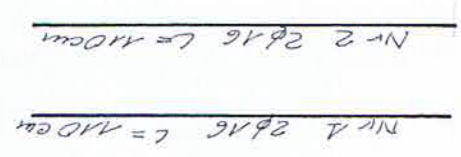 Nr 1 2ϕ16 L=110cm
Nr 2 2ϕ16 L=110cm